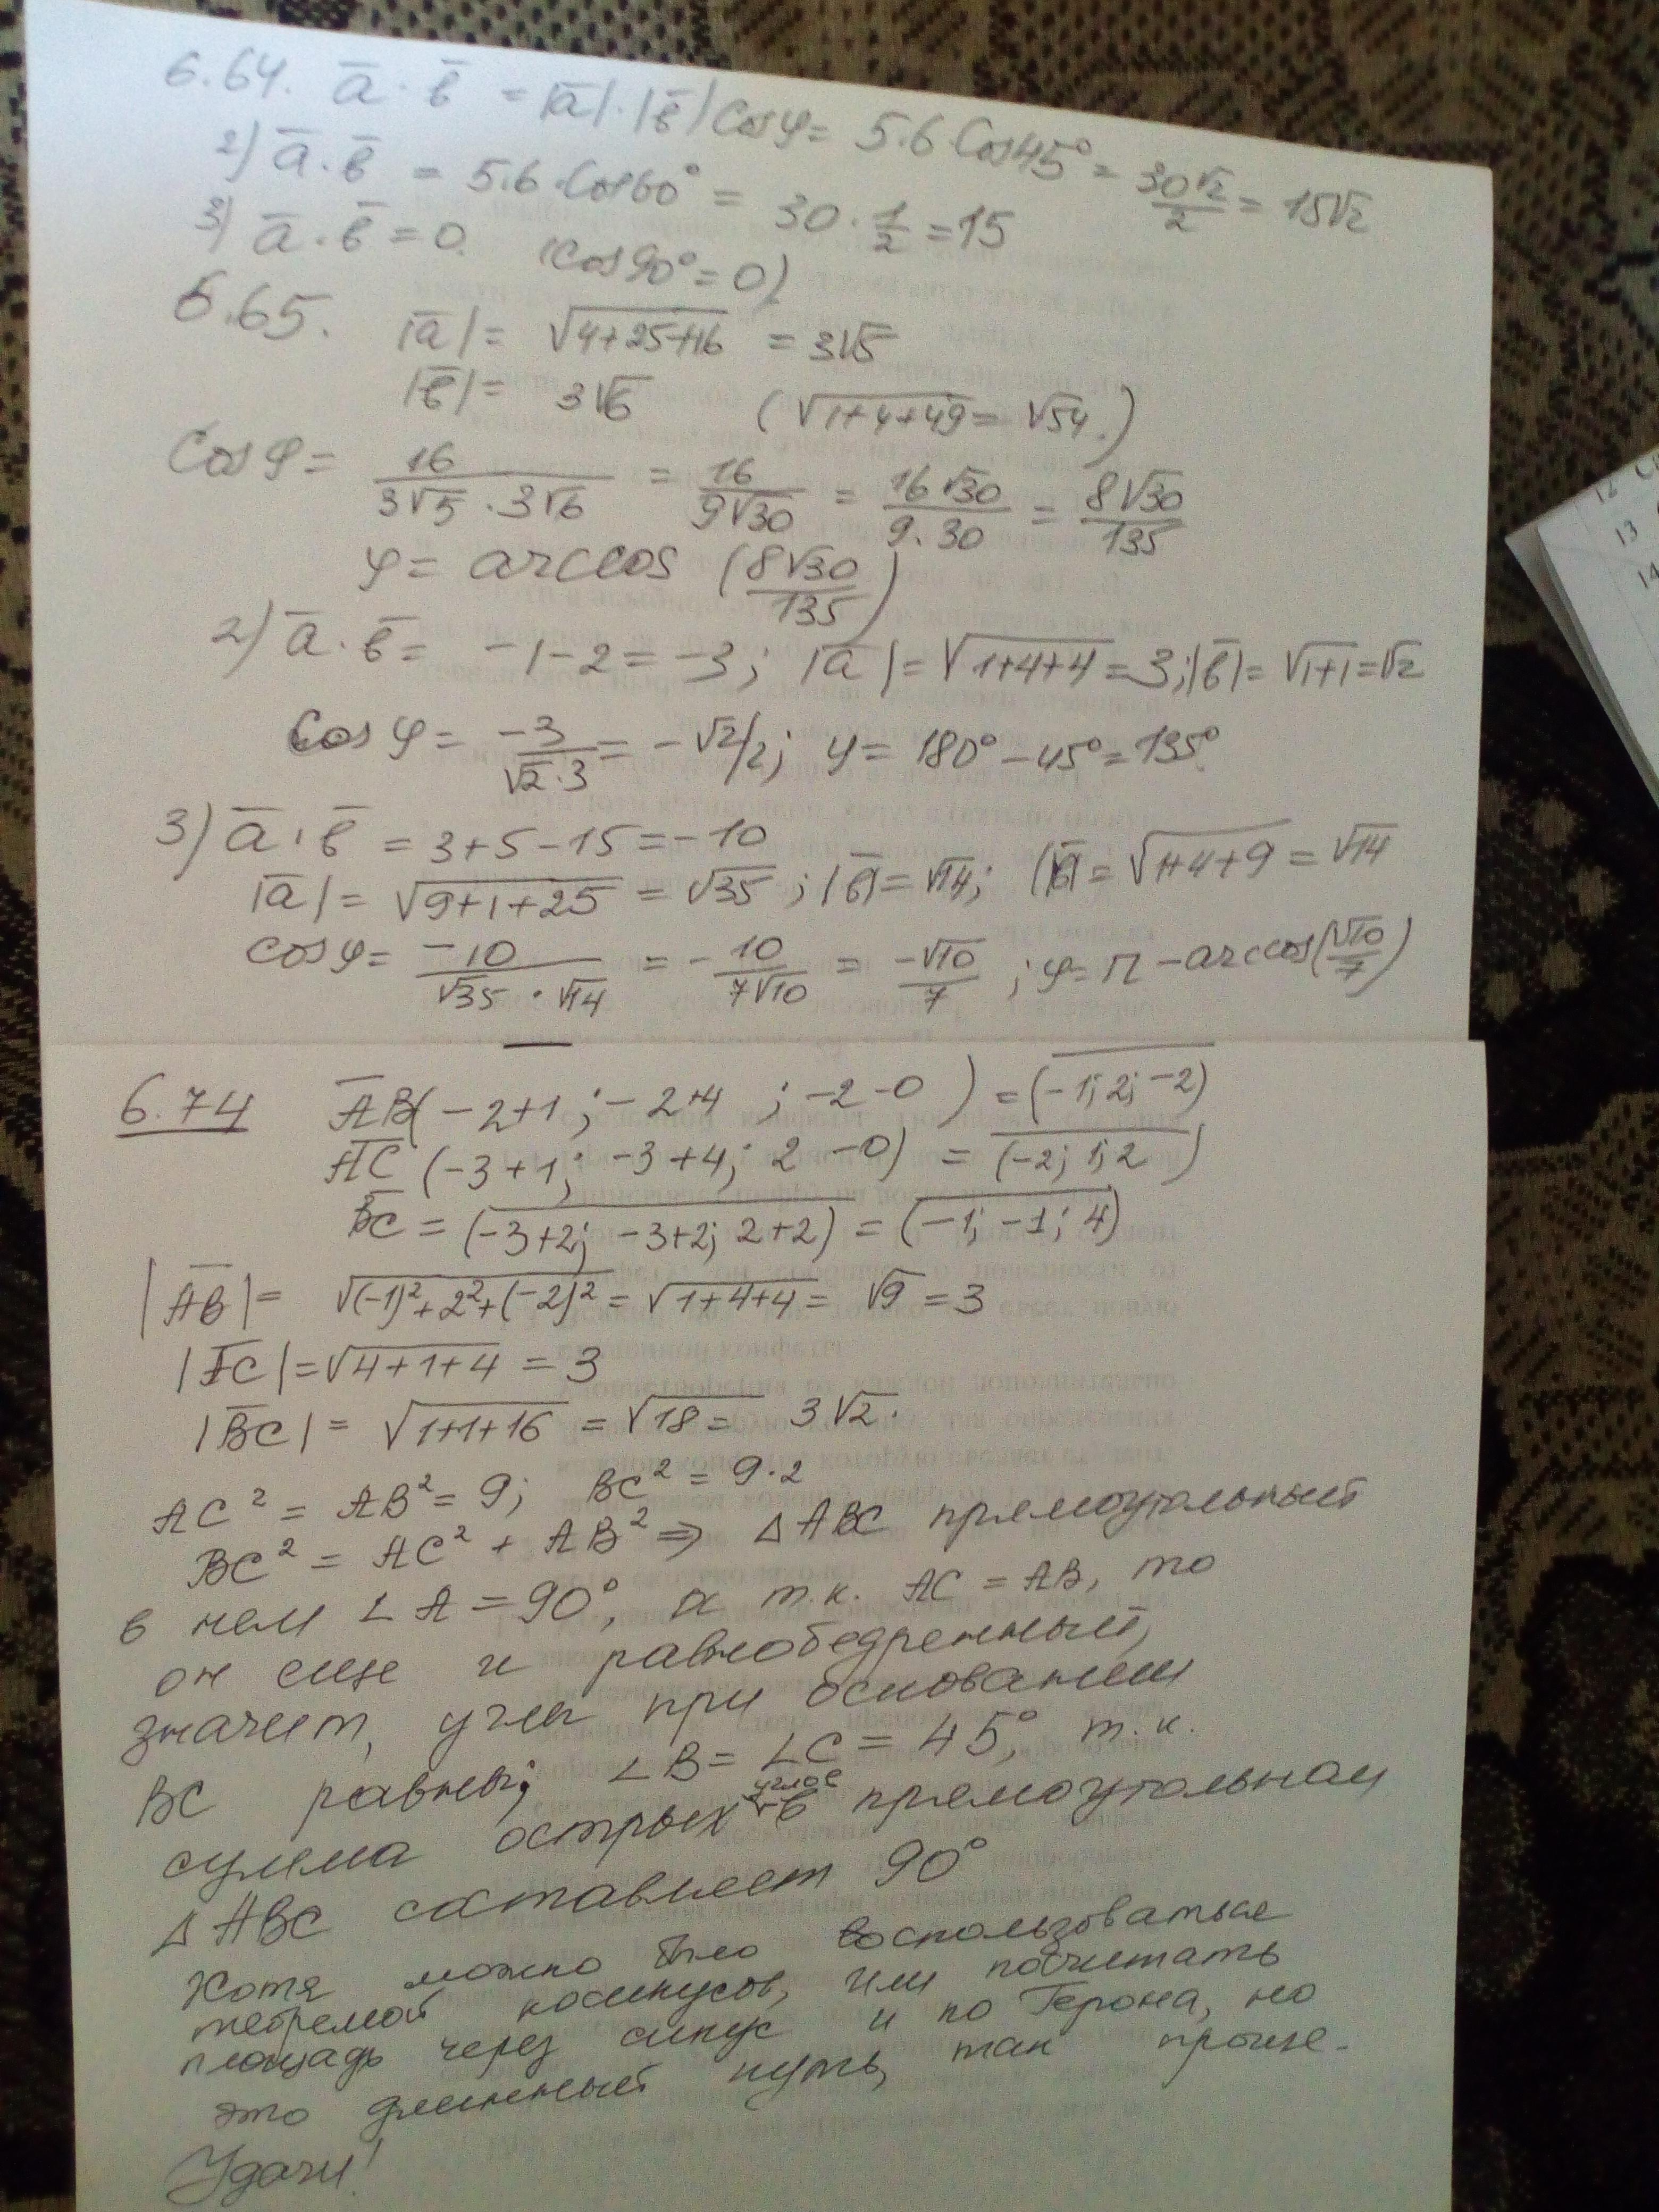 6.64. a̅ · b̅ = |a̅|·|b̅| cos φ = 5·6 cos 45° = 30√2/2 = 15√2
2) a̅ · b̅ = 5·6·cos 60° = 30 · 1/2 = 15
3) a̅ · b̅ = 0. (cos 90° = 0)
6.65. |a̅| = √(4+25+16) = 3√5
|b̅| = 3√6 (√(1+4+49) = √54.)
cos φ = 16/(3√5 · 3√6) = 16/(9√30) = 16√30/(9·30) = 8√30/135
φ = arccos (8√30/135)
2) a̅ · b̅ = -1-2 = -3; |a̅| = √(1+4+4) = 3; |b̅| = √(1+1) = √2
cos φ = -3/(√2·3) = -√2/2; φ = 180° - 45° = 135°.
3) a̅ · b̅ = 3+5-15 = -10
|a̅| = √(9+1+25) = √35; |b̅| = √14; |b̅| = √(1+4+9) = √14
cos φ = -10/(√35 · √14) = -10/(7√10) = -√10/7; φ = π - arccos(√10/7)
6.74 A̅B̅(-2+1; -2+4; -2-0) = (-1; 2; -2)
A̅C̅ (-3+1; -3+4; 2-0) = (-2; 1; 2)
B̅C̅ = (-3+2; -3+2; 2+2) = (-1; -1; 4)
|A̅B̅| = √((-1)²+2²+(-2)²) = √(1+4+4) = √9 = 3
|A̅C̅| = √(4+1+4) = 3
|B̅C̅| = √(1+1+16) = √18 = 3√2.
AC² = AB² = 9; BC² = 9·2
BC² = AC² + AB² ⇒ △ABC прямоугольный
в нем ∠A = 90°, а т.к. AC = AB, то
он еще и равнобедренный,
значит, углы при основании
BC равны; ∠B = ∠C = 45°, т.к.
сумма острых углов в прямоугольном
△ABC составляет 90°
Хотя можно было воспользоваться
теоремой косинусов, или посчитать
площадь через синус и по Герона, но
это длинный путь, так проще.
Удачи!